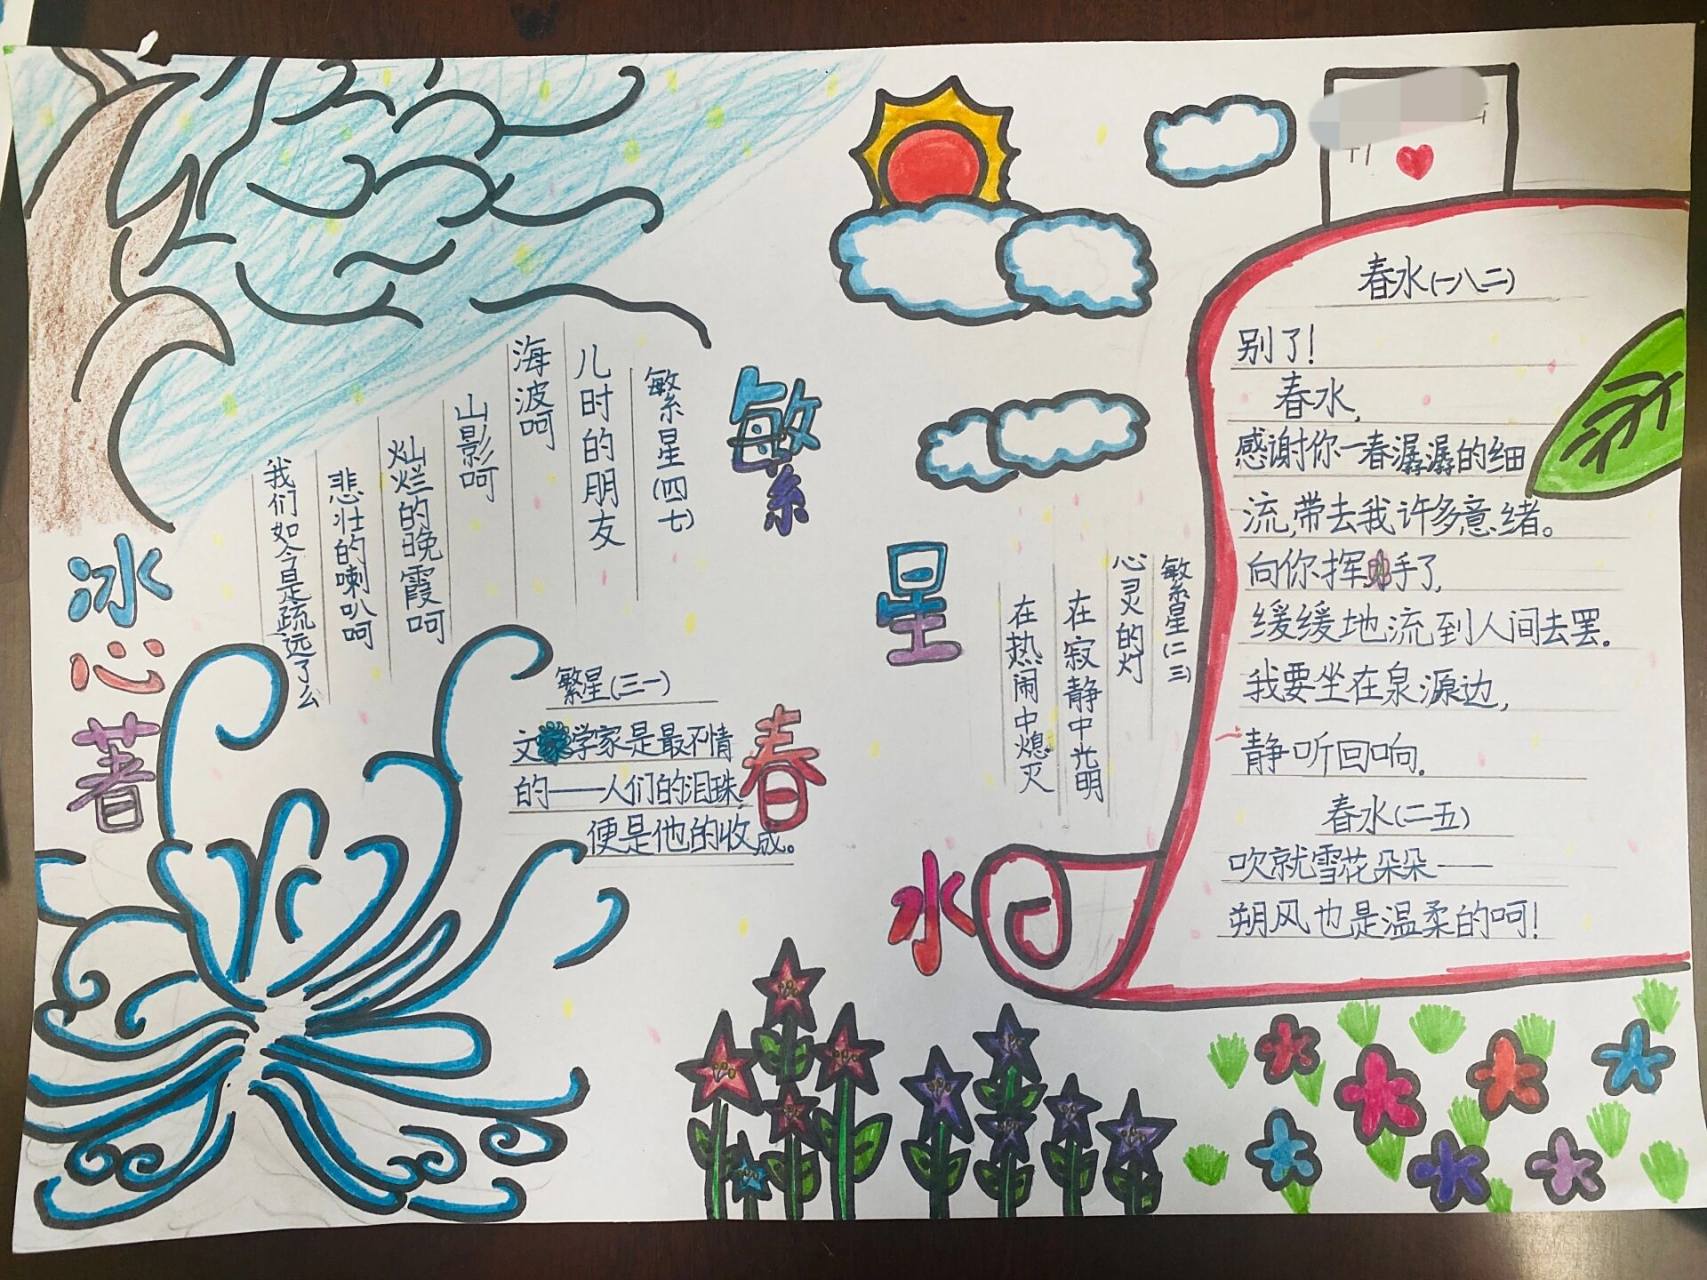 繁星
春水
冰心著
繁星(四七)
儿时的朋友
海波呵
山影呵
灿烂的晚霞呵
悲壮的喇叭呵
我们如今是疏远了么
繁星(三一)
文学家是最不情
的——人们的泪珠
便是他的收成。
繁星(二三)
心灵的灯
在寂静中光明
在热闹中熄灭
春水(一八二)
别了!
春水,
感谢你一春潺潺的细
流,带去我许多意绪。
向你挥手了,
缓缓地流到人间去罢.
我要坐在泉源边,
静听回响.
春水(二五)
吹就雪花朵朵——
朔风也是温柔的呵!